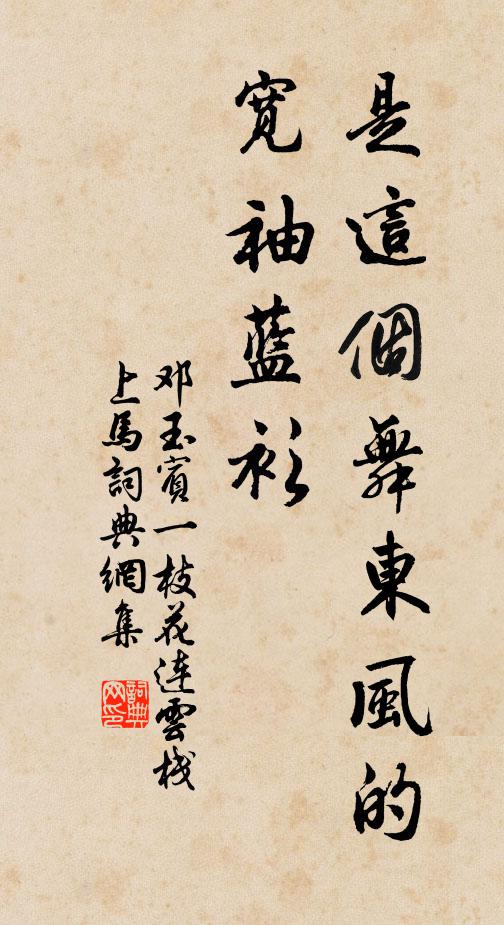 是這個舞東風的
寬袖藍衫
邓玉賓一枝花連雲棧
上馬詞典網集
詞典
网印